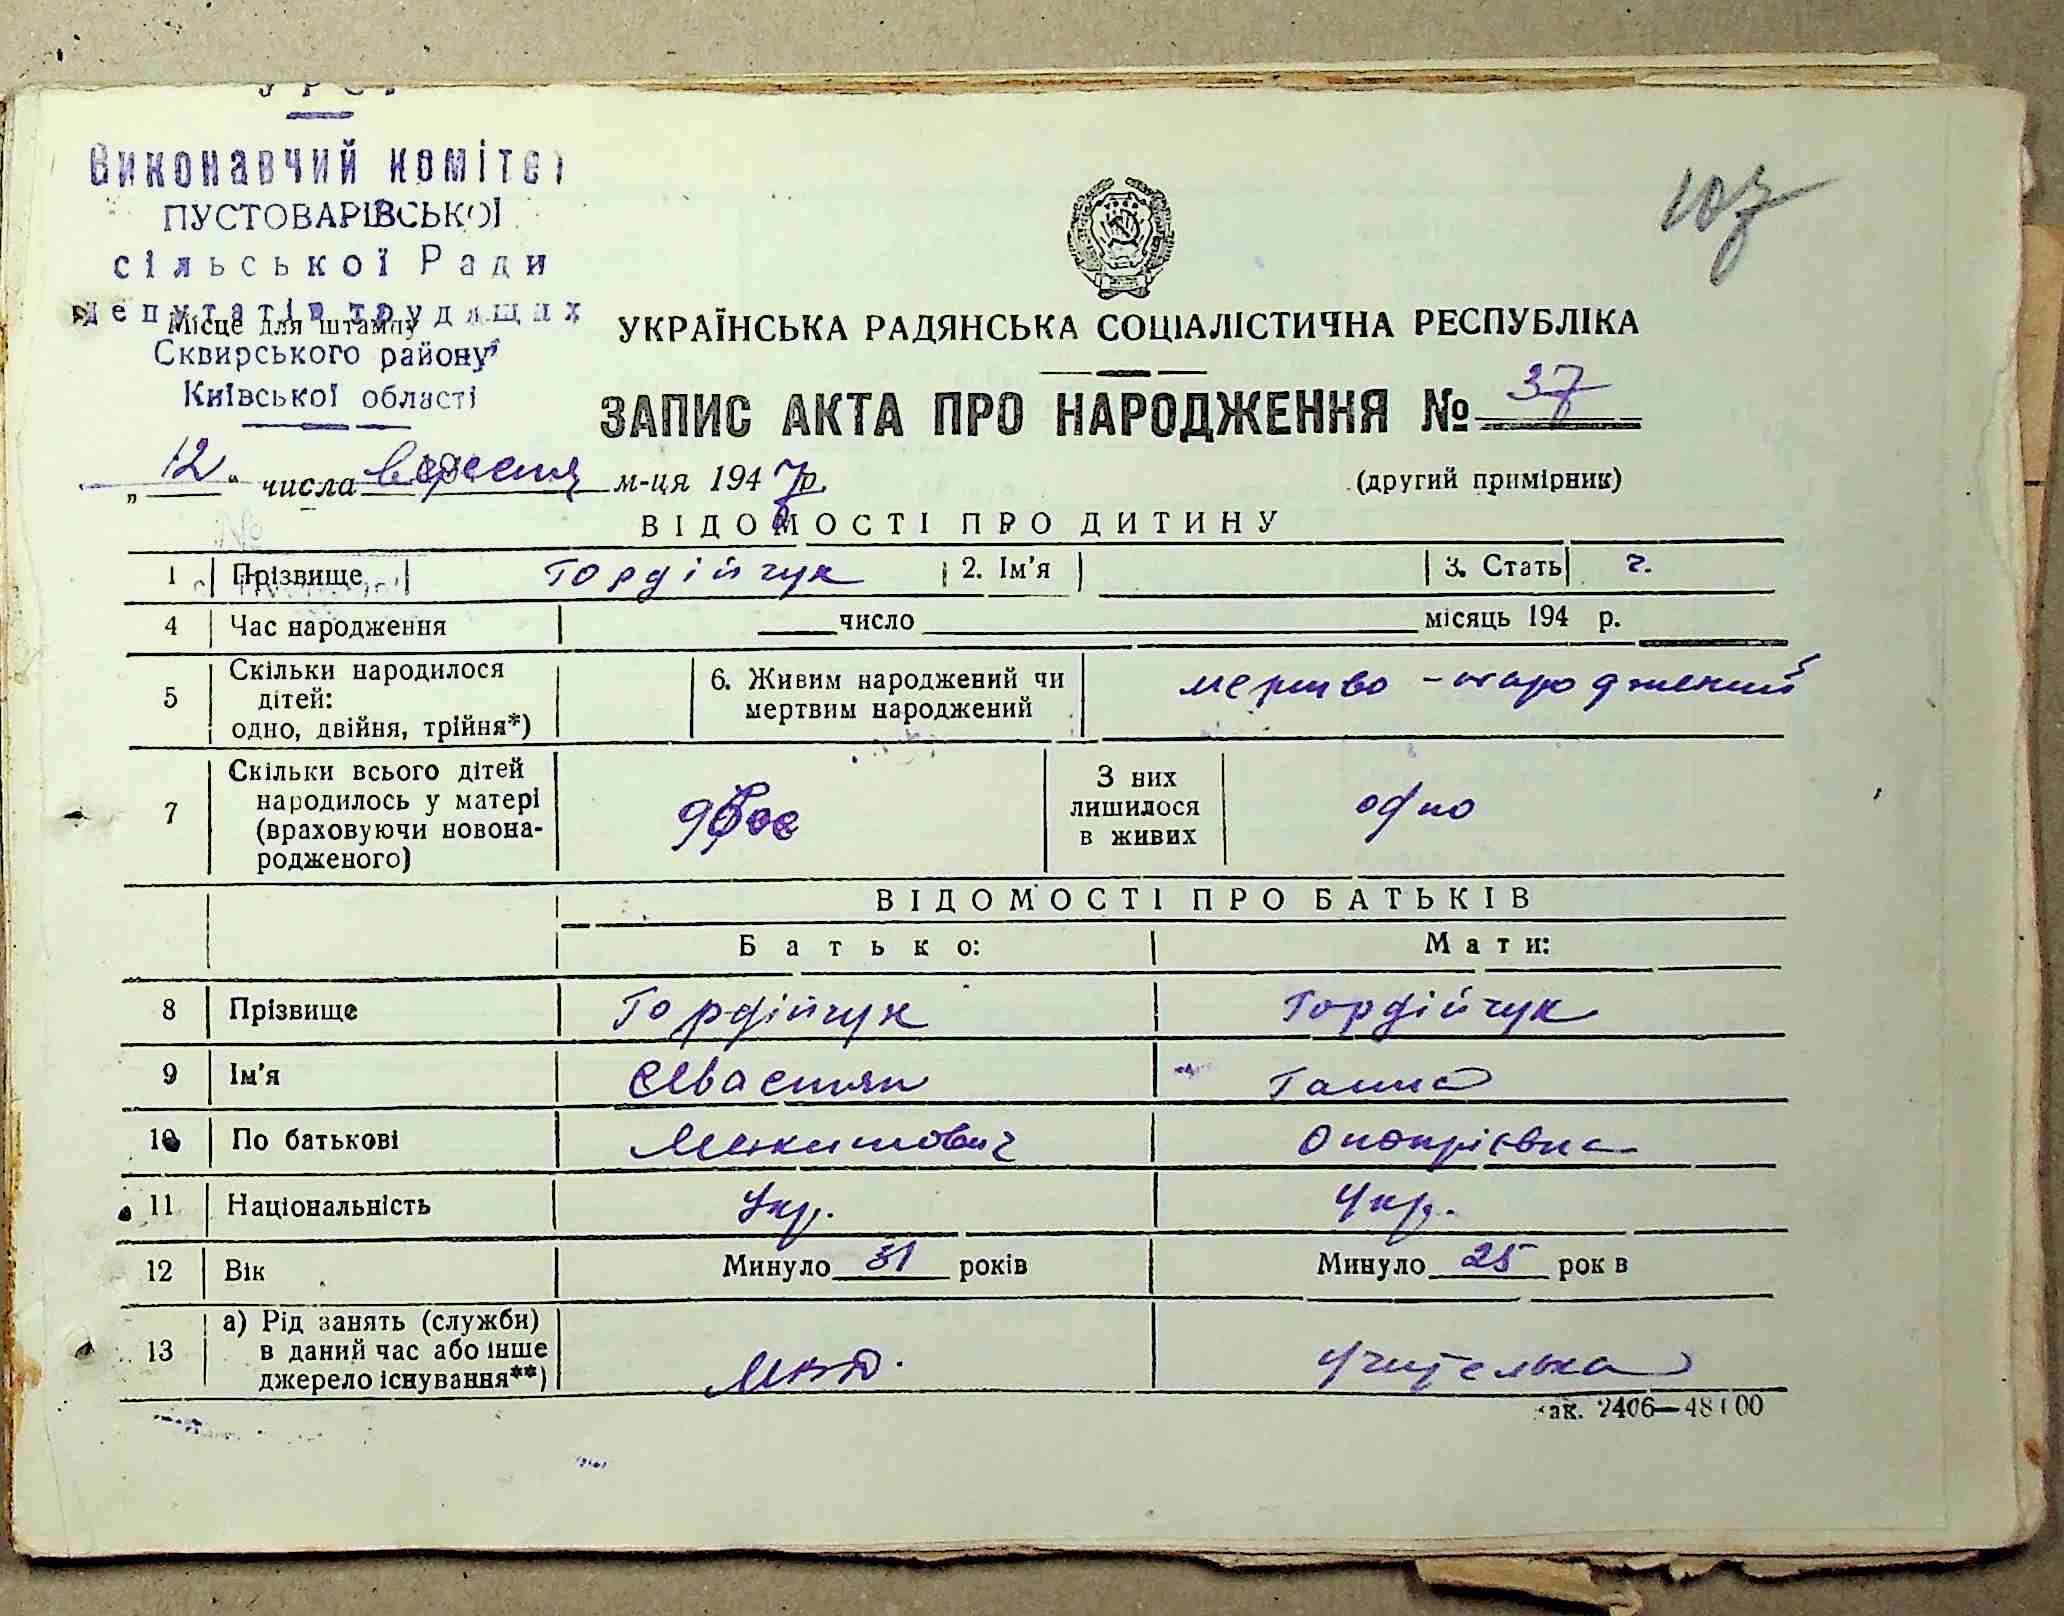 УРСР
Виконавчий комітет
ПУСТОВАРІВСЬКОЇ
сільської Ради
депутатів трудящих
Місце для штампу
Сквирського району
Київської області
107
УКРАЇНСЬКА РАДЯНСЬКА СОЦІАЛІСТИЧНА РЕСПУБЛІКА
ЗАПИС АКТА ПРО НАРОДЖЕННЯ № 37
„12“ числа вересня м-ця 1947 р.
(другий примірник)
ВІДОМОСТІ ПРО ДИТИНУ
1 Прізвище Гордійчук 2. Ім'я 3. Стать ч.
4 Час народження число місяць 194 р.
5 Скільки народилося дітей: одно, двійня, трійня*) 6. Живим народжений чи мертвим народжений мертво-народжений
7 Скільки всього дітей народилось у матері (враховуючи новона-родженого) двоє З них лишилося в живих одно
ВІДОМОСТІ ПРО БАТЬКІВ
Батько: Мати:
8 Прізвище Гордійчук Гордійчук
9 Ім'я Савастян Ганна
10 По батькові Микитович Онопріївна
11 Національність Укр. Укр.
12 Вік Минуло 31 років Минуло 25 рок в
13 а) Рід занять (служби) в даний час або інше джерело існування**) учителька
зак. 2406—48100